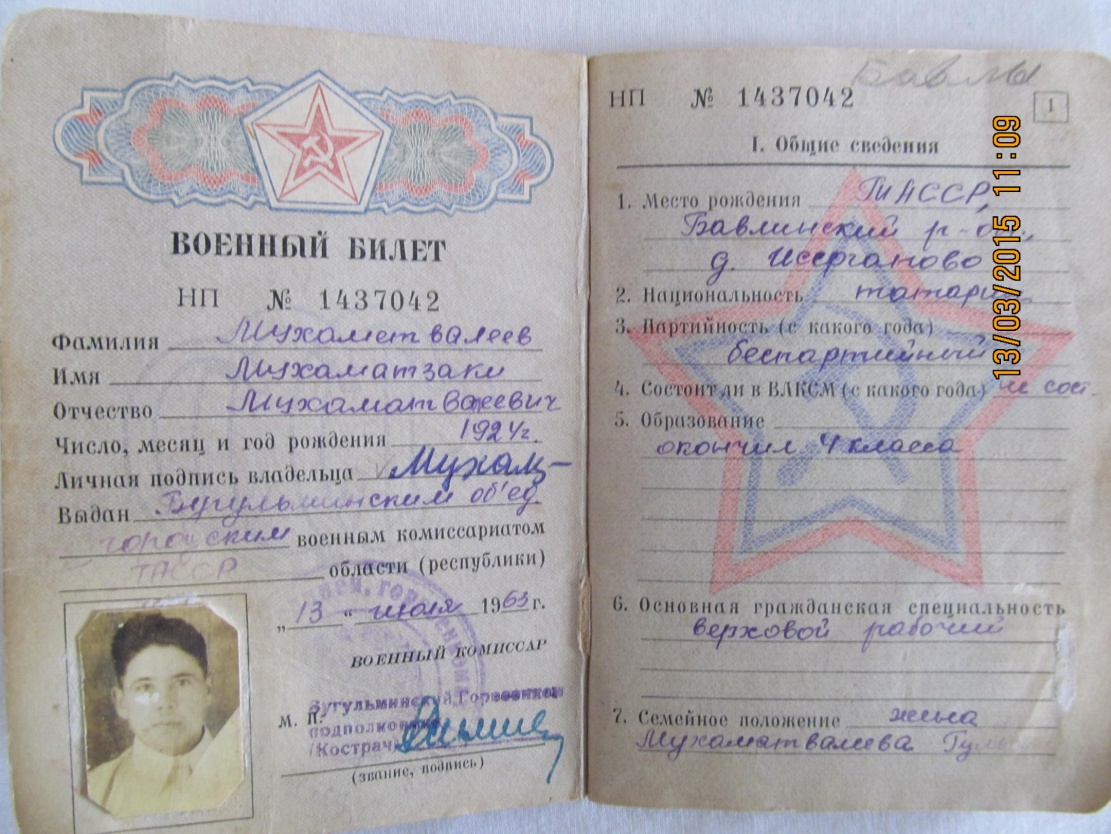 ВОЕННЫЙ БИЛЕТ
НП № 1437042
Фамилия Мухаметвалеев
Имя Мухаматзаки
Отчество Мухаматвалеевич
Число, месяц и год рождения 1924г.
Личная подпись владельца Мухам
Выдан Бугульминским об'ед.
городским военным комиссариатом
ТАССР области (республики)
„13 " июля 1963 г.
ВОЕННЫЙ КОМИССАР
Бугульминский Горвоенком
М. П. подполковник
/Костра
(звание, подпись)
Бавлы
НП № 1437042
1
I. Общие сведения
1. Место рождения ТАССР,
Бавлинский р-он,
д. Исергапово
2. Национальность татарин
3. Партийность (с какого года)
беспартийный
4. Состоит ли в ВЛКСМ (с какого года) не сост.
5. Образование
окончил 4 класса
6. Основная гражданская специальность
верховой рабочий
7. Семейное положение жена
Мухаматвалеева
13/03/2015 11:09